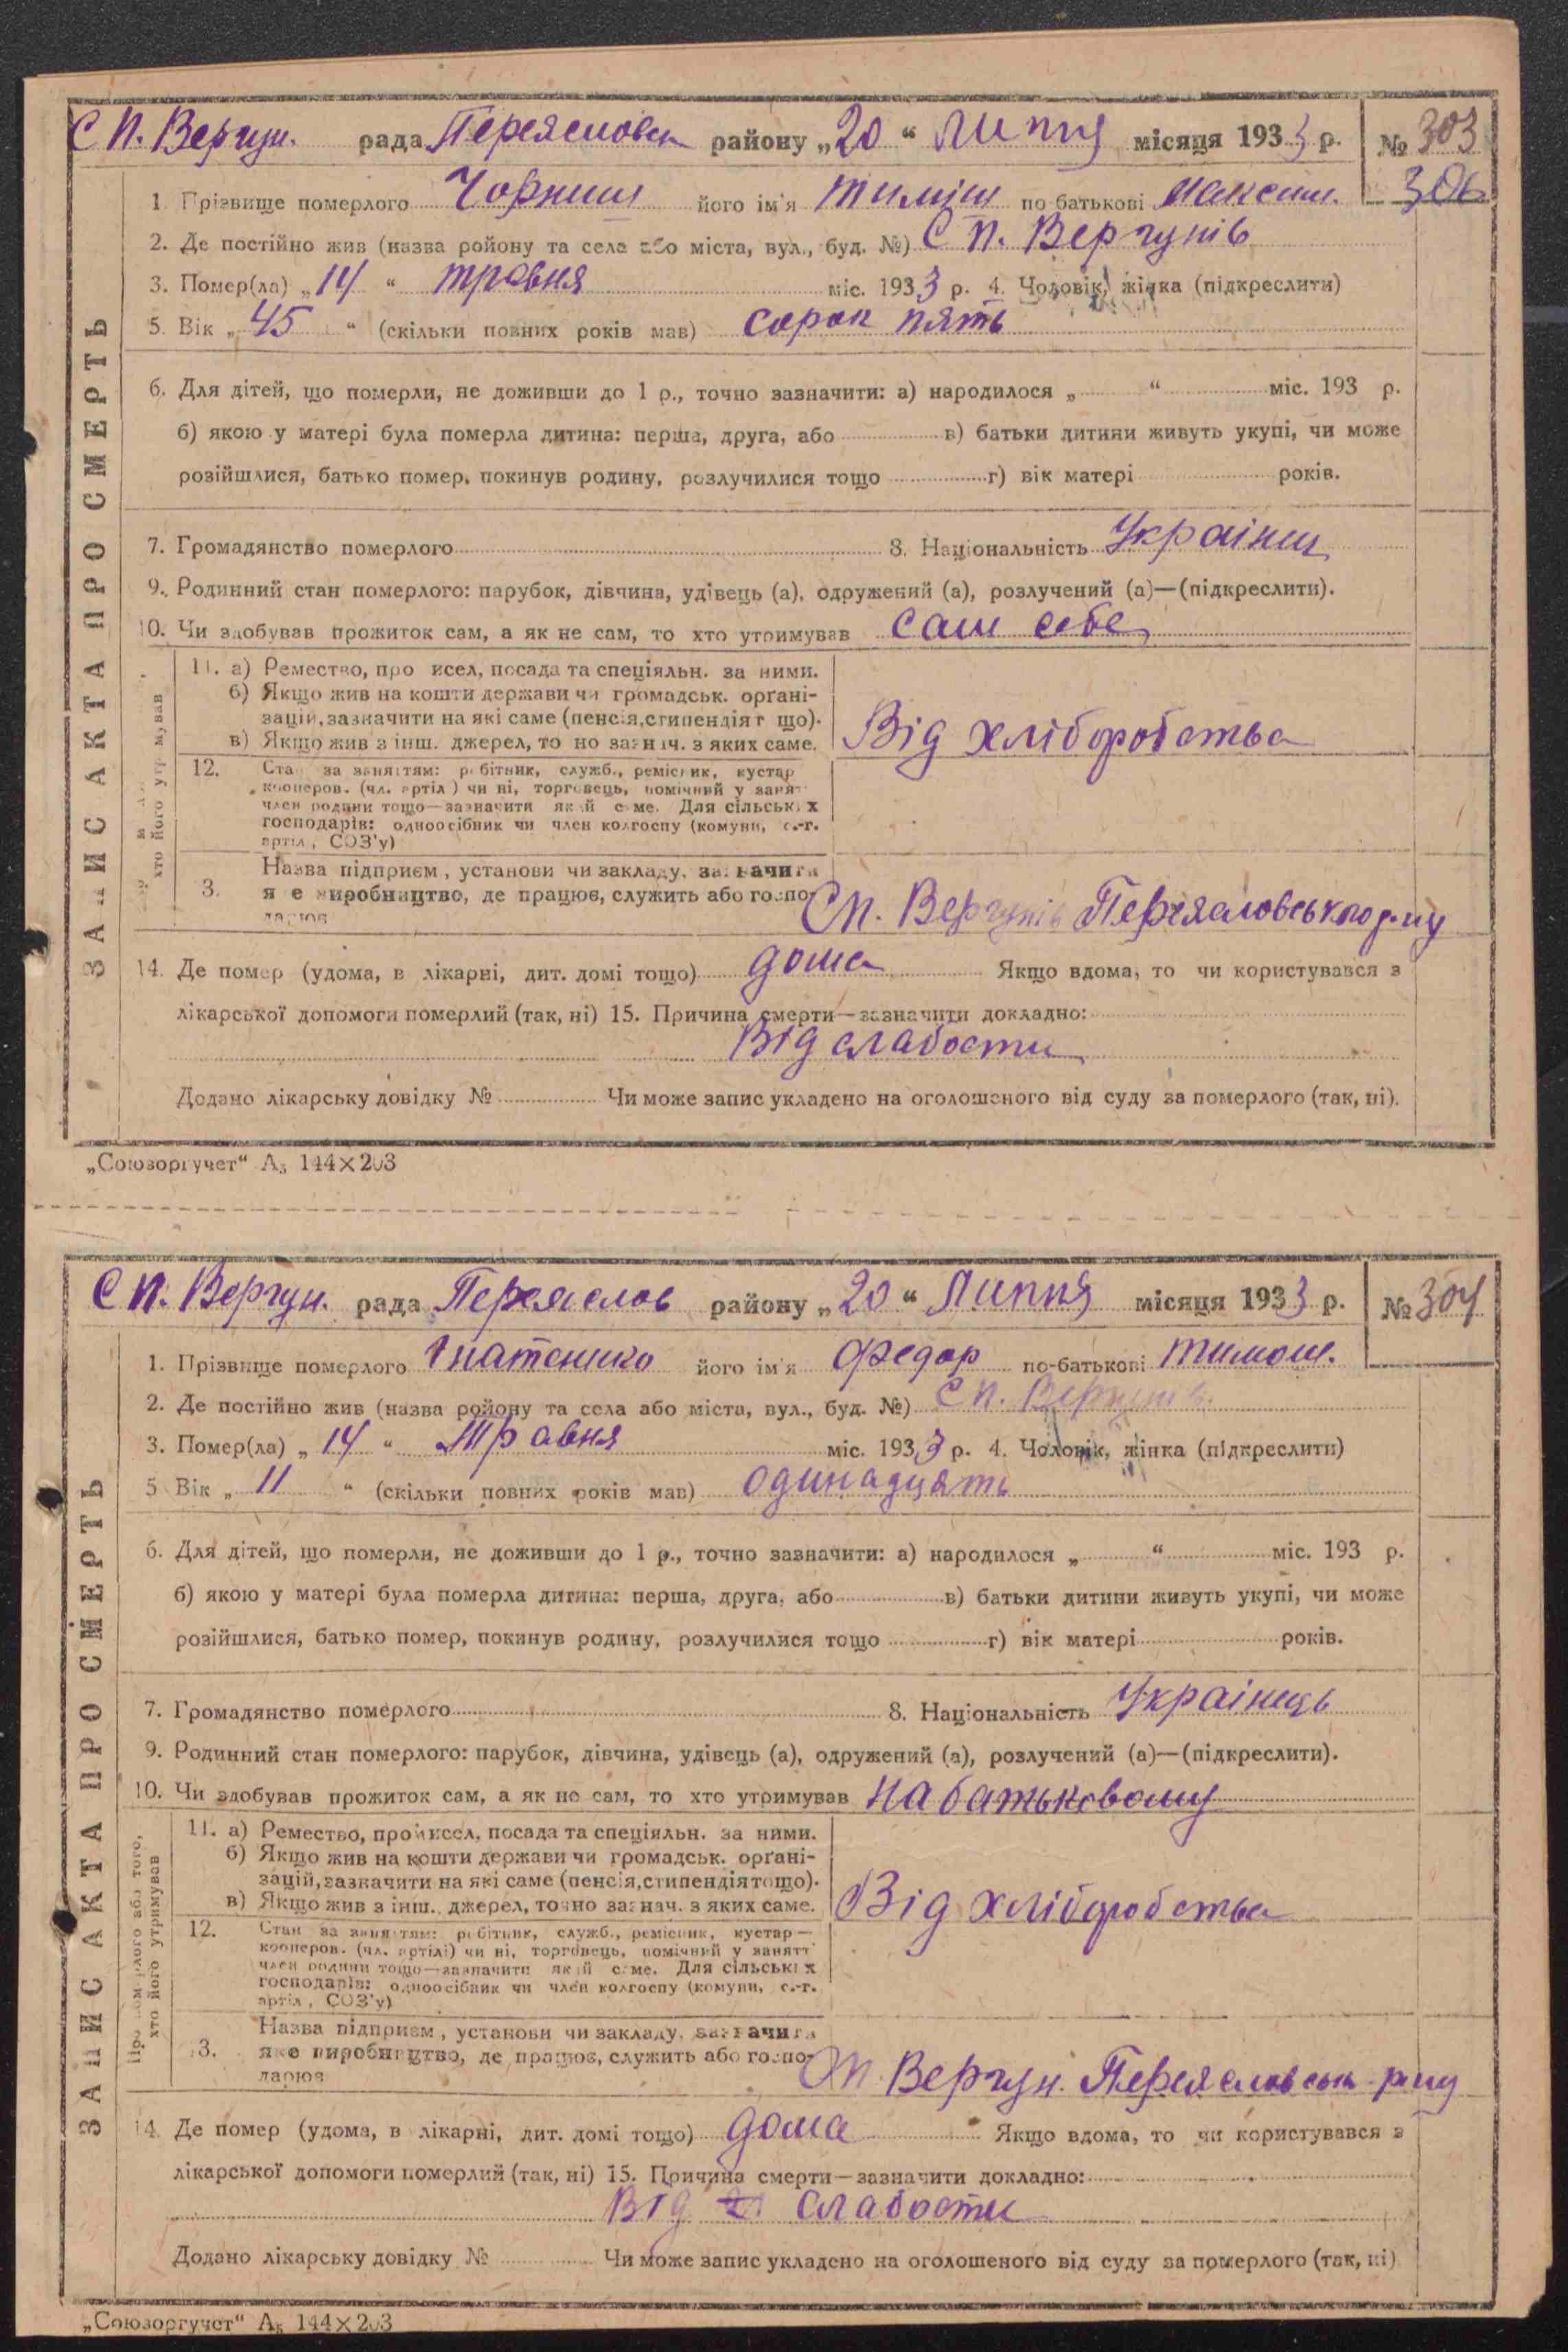 С П. Вергун. рада Переясловськ району „20“ Липня місяця 1933 р. № 303
306
1. Прізвище померлого Чорниш його ім'я Тиміш по батькові Максим.
2. Де постійно жив (назва ройону та села або міста, вул., буд. №) С П. Вергунів
3. Помер(ла) „14“ травня міс. 1933 р. 4. Чоловік, жінка (підкреслити)
5. Вік „45“ (скільки повних років мав) сорок пять
6. Для дітей, що померли, не доживши до 1 р., точно зазначити: а) народилося „ “ міс. 193 р.
б) якою у матері була померла дитина: перша, друга, або в) батьки дитини живуть укупі, чи може
розійшлися, батько помер, покинув родину, розлучилися тощо г) вік матері років.
7. Громадянство померлого 8. Національність Українец
9. Родинний стан померлого: парубок, дівчина, удівець (а), одружений (а), розлучений (а)—(підкреслити).
10. Чи здобував прожиток сам, а як не сам, то хто утримував сам себе
11. а) Ремество, про исел, посада та спеціяльн. за ними.
б) Якщо жив на кошти держави чи громадськ. орґані-
зацій, зазначити на які саме (пенсія, стипендія т що).
в) Якщо жив з інш. джерел, то но зазнач. з яких саме.
Від хліборобства
12. Стан за заняттям: робітник, служб., ремісник, кустар
кооперов. (чл. артілі) чи ні, торговець, помічний у занят
член родини тощо—зазначити який саме. Для сільських
господарів: одноосібник чи член колгоспу (комуни, с.-г.
артіл, СОЗ'у)
хто його утримував
3. Назва підприєм, установи чи закладу, зазначити
яке виробництво, де працює, служить або госпо-
дарює
Сп. Вергунів Переясловського р-ну
14. Де помер (удома, в лікарні, дит. домі тощо) дома Якщо вдома, то чи користувався з
лікарської допомоги померлий (так, ні) 15. Причина смерти—зазначити докладно:
Від слабости
Додано лікарську довідку № Чи може запис укладено на оголошеного від суду за померлого (так, ні).
ЗАПИС АКТА ПРО СМЕРТЬ
„Союзоргучет“ А₅ 144×203
С П. Вергун. рада Переяслов району „20“ Липня місяця 1933 р. № 304
1. Прізвище померлого Гнатенико його ім'я Федор по-батькові Тимош.
2. Де постійно жив (назва ройону та села або міста, вул., буд. №) С П. Вергунів.
3. Помер(ла) „14“ Травня міс. 1933 р. 4. Чоловік, жінка (підкреслити)
5 Вік „11“ (скільки повних років мав) одинадцять
6. Для дітей, що померли, не доживши до 1 р., точно зазначити: а) народилося „ “ міс. 193 р.
б) якою у матері була померла дитина: перша, друга, або в) батьки дитини живуть укупі, чи може
розійшлися, батько помер, покинув родину, розлучилися тощо г) вік матері років.
7. Громадянство померлого 8. Національність Українець
9. Родинний стан померлого: парубок, дівчина, удівець (а), одружений (а), розлучений (а)—(підкреслити).
10. Чи здобував прожиток сам, а як не сам, то хто утримував на батьковому
11. а) Ремество, промисел, посада та спеціяльн. за ними.
б) Якщо жив на кошти держави чи громадськ. орґані-
зацій, зазначити на які саме (пенсія, стипендія тощо).
в) Якщо жив з інш. джерел, точно зазнач. з яких саме.
Від хліборобства
12. Стан за заняттям: робітник, служб., ремісник, кустар—
кооперов. (чл. артілі) чи ні, торговець, помічний у занятт
член родини тощо—зазначити який саме. Для сільських
господарів: одноосібник чи член колгоспу (комуни, с.-г.
артіл, СОЗ'у)
Про померлого або того,
хто його утримував
3. Назва підприєм, установи чи закладу, зазначити
яке виробництво, де працює, служить або госпо-
дарює
Сп. Вергун. Переясловськ р-ну
14. Де помер (удома, в лікарні, дит. домі тощо) дома Якщо вдома, то чи користувався з
лікарської допомоги померлий (так, ні) 15. Причина смерти—зазначити докладно:
Від слабости
Додано лікарську довідку № Чи може запис укладено на оголошеного від суду за померлого (так, ні)
ЗАПИС АКТА ПРО СМЕРТЬ
„Союзоргучет“ А₅ 144×203